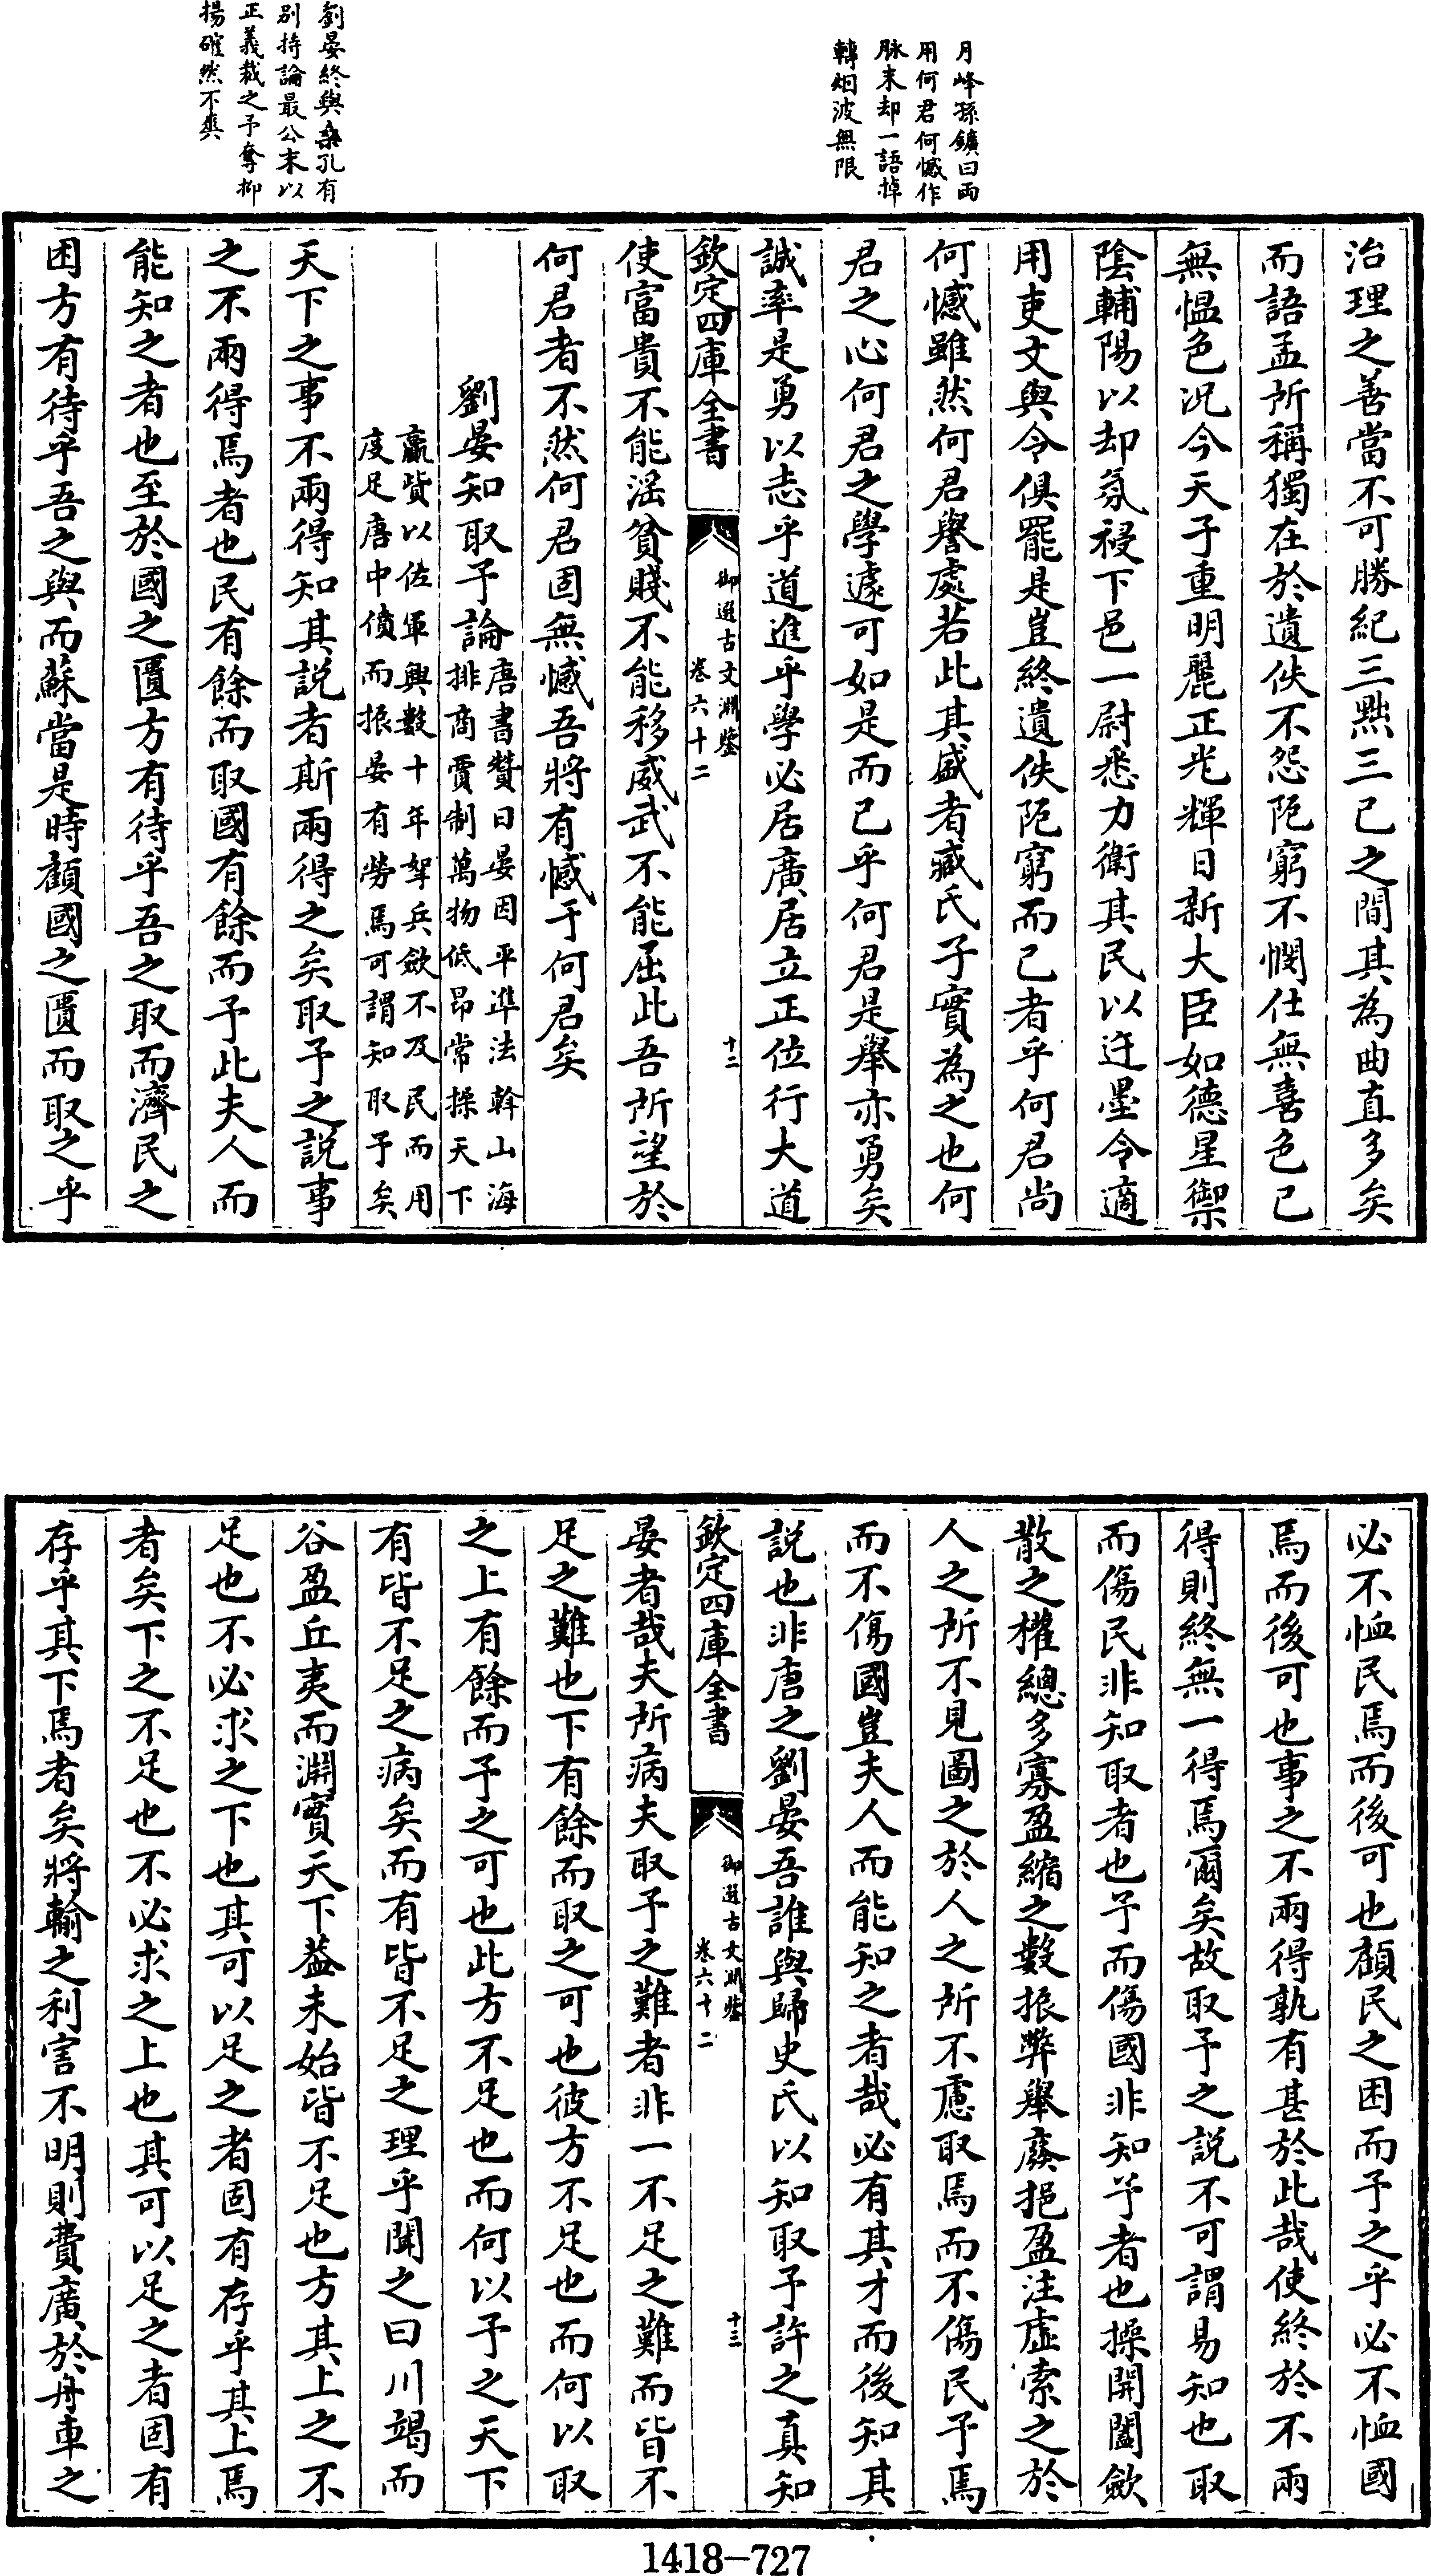 月峰孫鑛曰兩
用何君何憾作
脉末却一語掉
轉烟波無限
劉晏終與桑孔有
别持論最公末以
正義裁之予奪抑
揚確然不爽
治理之善當不可勝紀三黜三已之間其為曲直多矣
而語孟所稱獨在於遺佚不怨阨窮不憫仕無喜色已
無愠色况今天子重明麗正光輝日新大臣如德星禦
陰輔陽以却氛祲下邑一尉悉力衛其民以迕墨令適
用吏文與令俱罷是豈終遺佚阨窮而已者乎何君尚
何憾雖然何君譽處若此其盛者臧氏子實為之也何
君之心何君之學遽可如是而已乎何君是舉亦勇矣
誠率是勇以志乎道進乎學必居廣居立正位行大道
欽定四庫全書
御選古文淵鑒
卷六十二
十二
使富貴不能滛貧賤不能移威武不能屈此吾所望於
何君者不然何君固無憾吾將有憾于何君矣
劉晏知取予論
唐書贊曰晏因平準法斡山海
排商賈制萬物低昂常操天下
贏貲以佐軍興數十年挐兵歛不及民而用
度足唐中僨而振晏有勞焉可謂知取予矣
天下之事不兩得知其説者斯兩得之矣取予之説事
之不兩得焉者也民有餘而取國有餘而予此夫人而
能知之者也至於國之匱方有待乎吾之取而濟民之
困方有待乎吾之與而蘇當是時顧國之匱而取之乎
必不恤民焉而後可也顧民之困而予之乎必不恤國
焉而後可也事之不兩得孰有甚於此哉使終於不兩
得則終無一得焉爾矣故取予之説不可謂易知也取
而傷民非知取者也予而傷國非知予者也操開闔歛
散之權總多寡盈縮之數振弊舉廢挹盈注虛索之於
人之所不見圖之於人之所不慮取焉而不傷民予焉
而不傷國豈夫人而能知之者哉必有其才而後知其
説也非唐之劉晏吾誰與歸史氏以知取予許之真知
欽定四庫全書
御選古文淵鑒
卷六十二
十三
晏者哉夫所病夫取予之難者非一不足之難而皆不
足之難也下有餘而取之可也彼方不足也而何以取
之上有餘而予之可也此方不足也而何以予之天下
有皆不足之病矣而有皆不足之理乎聞之曰川竭而
谷盈丘夷而淵實天下葢未始皆不足也方其上之不
足也不必求之下也其可以足之者固有存乎其上焉
者矣下之不足也不必求之上也其可以足之者固有
存乎其下焉者矣將輸之利害不明則費廣於舟車之
1418-727